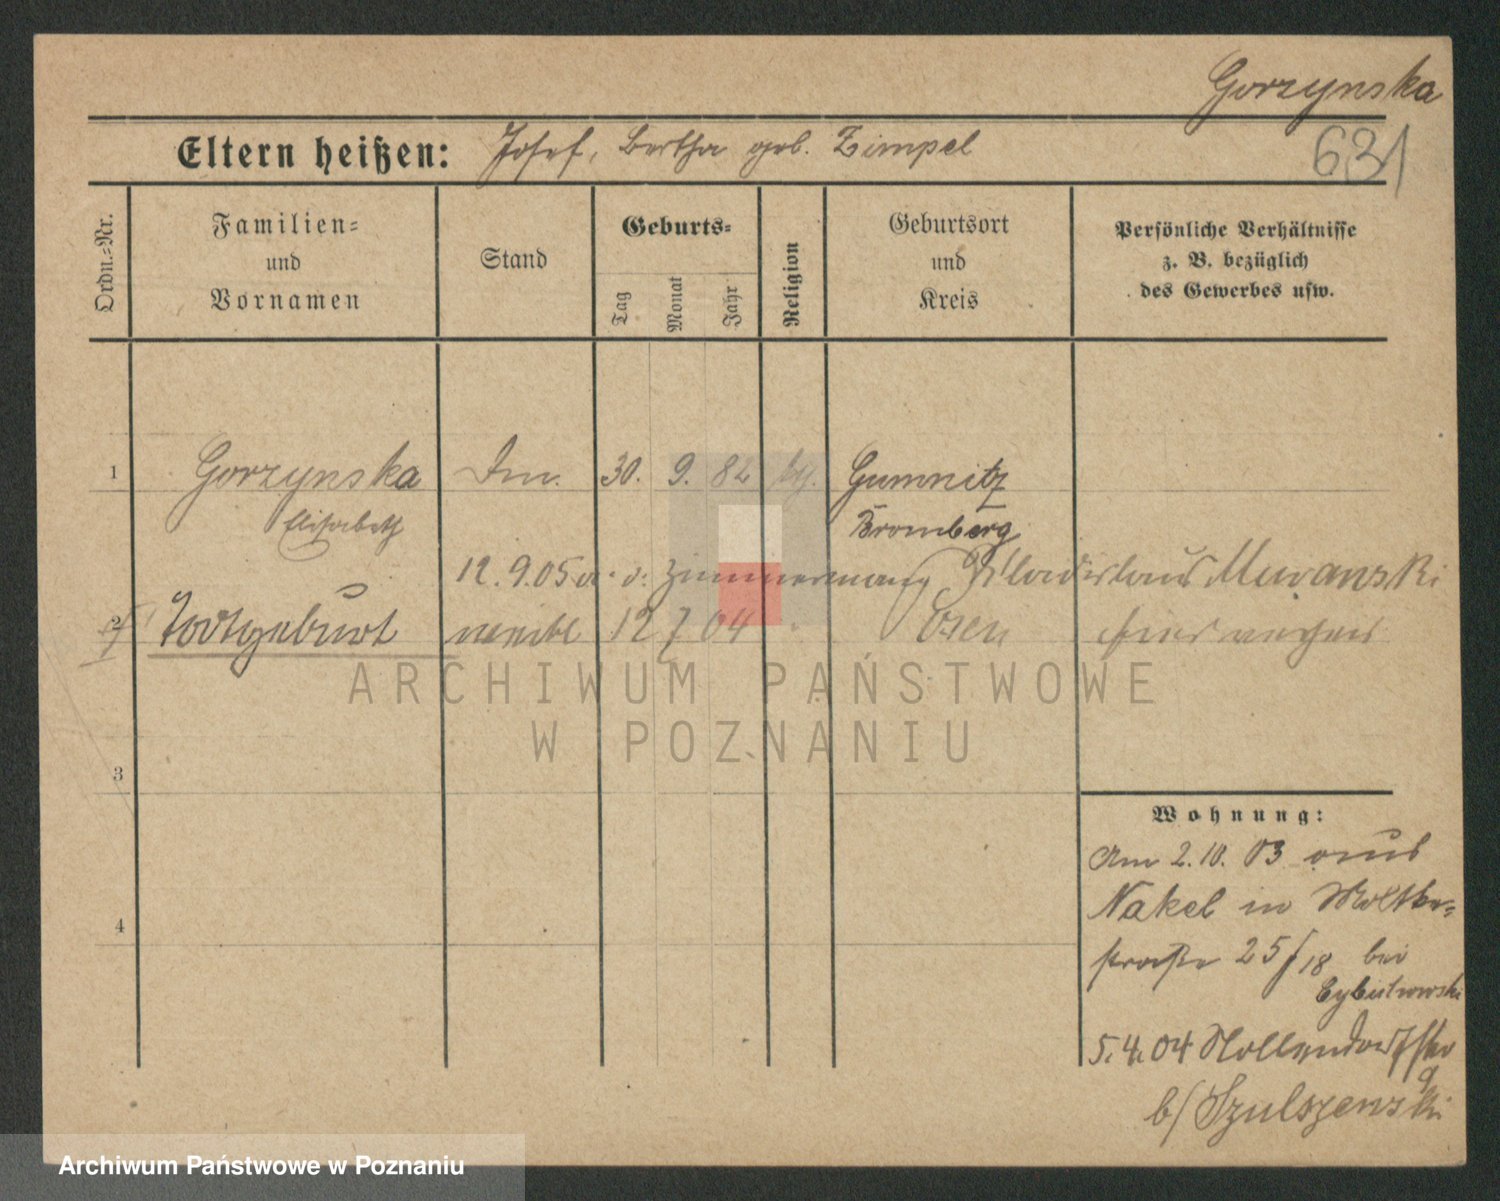 Gorzynska
631
Eltern heißen: Josef, Bertha geb. Zimpel
Ordn.=Nr.
Familien=
und
Vornamen
Stand
Geburts=
Tag
Monat
Jahr
Religion
Geburtsort
und
Kreis
Persönliche Verhältnisse
z. B. bezüglich
des Gewerbes usw.
1 Gorzynska 30. 9. 82 Gumnitz
Elisabeth Bromberg
12.9.05 Zimmermann Wladislaus
2 Todtgeburt weibl 12 7 04 Posen
ARCHIWUM PAŃSTWOWE
W POZNANIU
3
4
Wohnung:
Am 2.10.03 aus
Nakel in Moltke=
straße 25/18 bei
5.4.04 Nollendorfstr
9
b/ Szulszewski
Archiwum Państwowe w Poznaniu